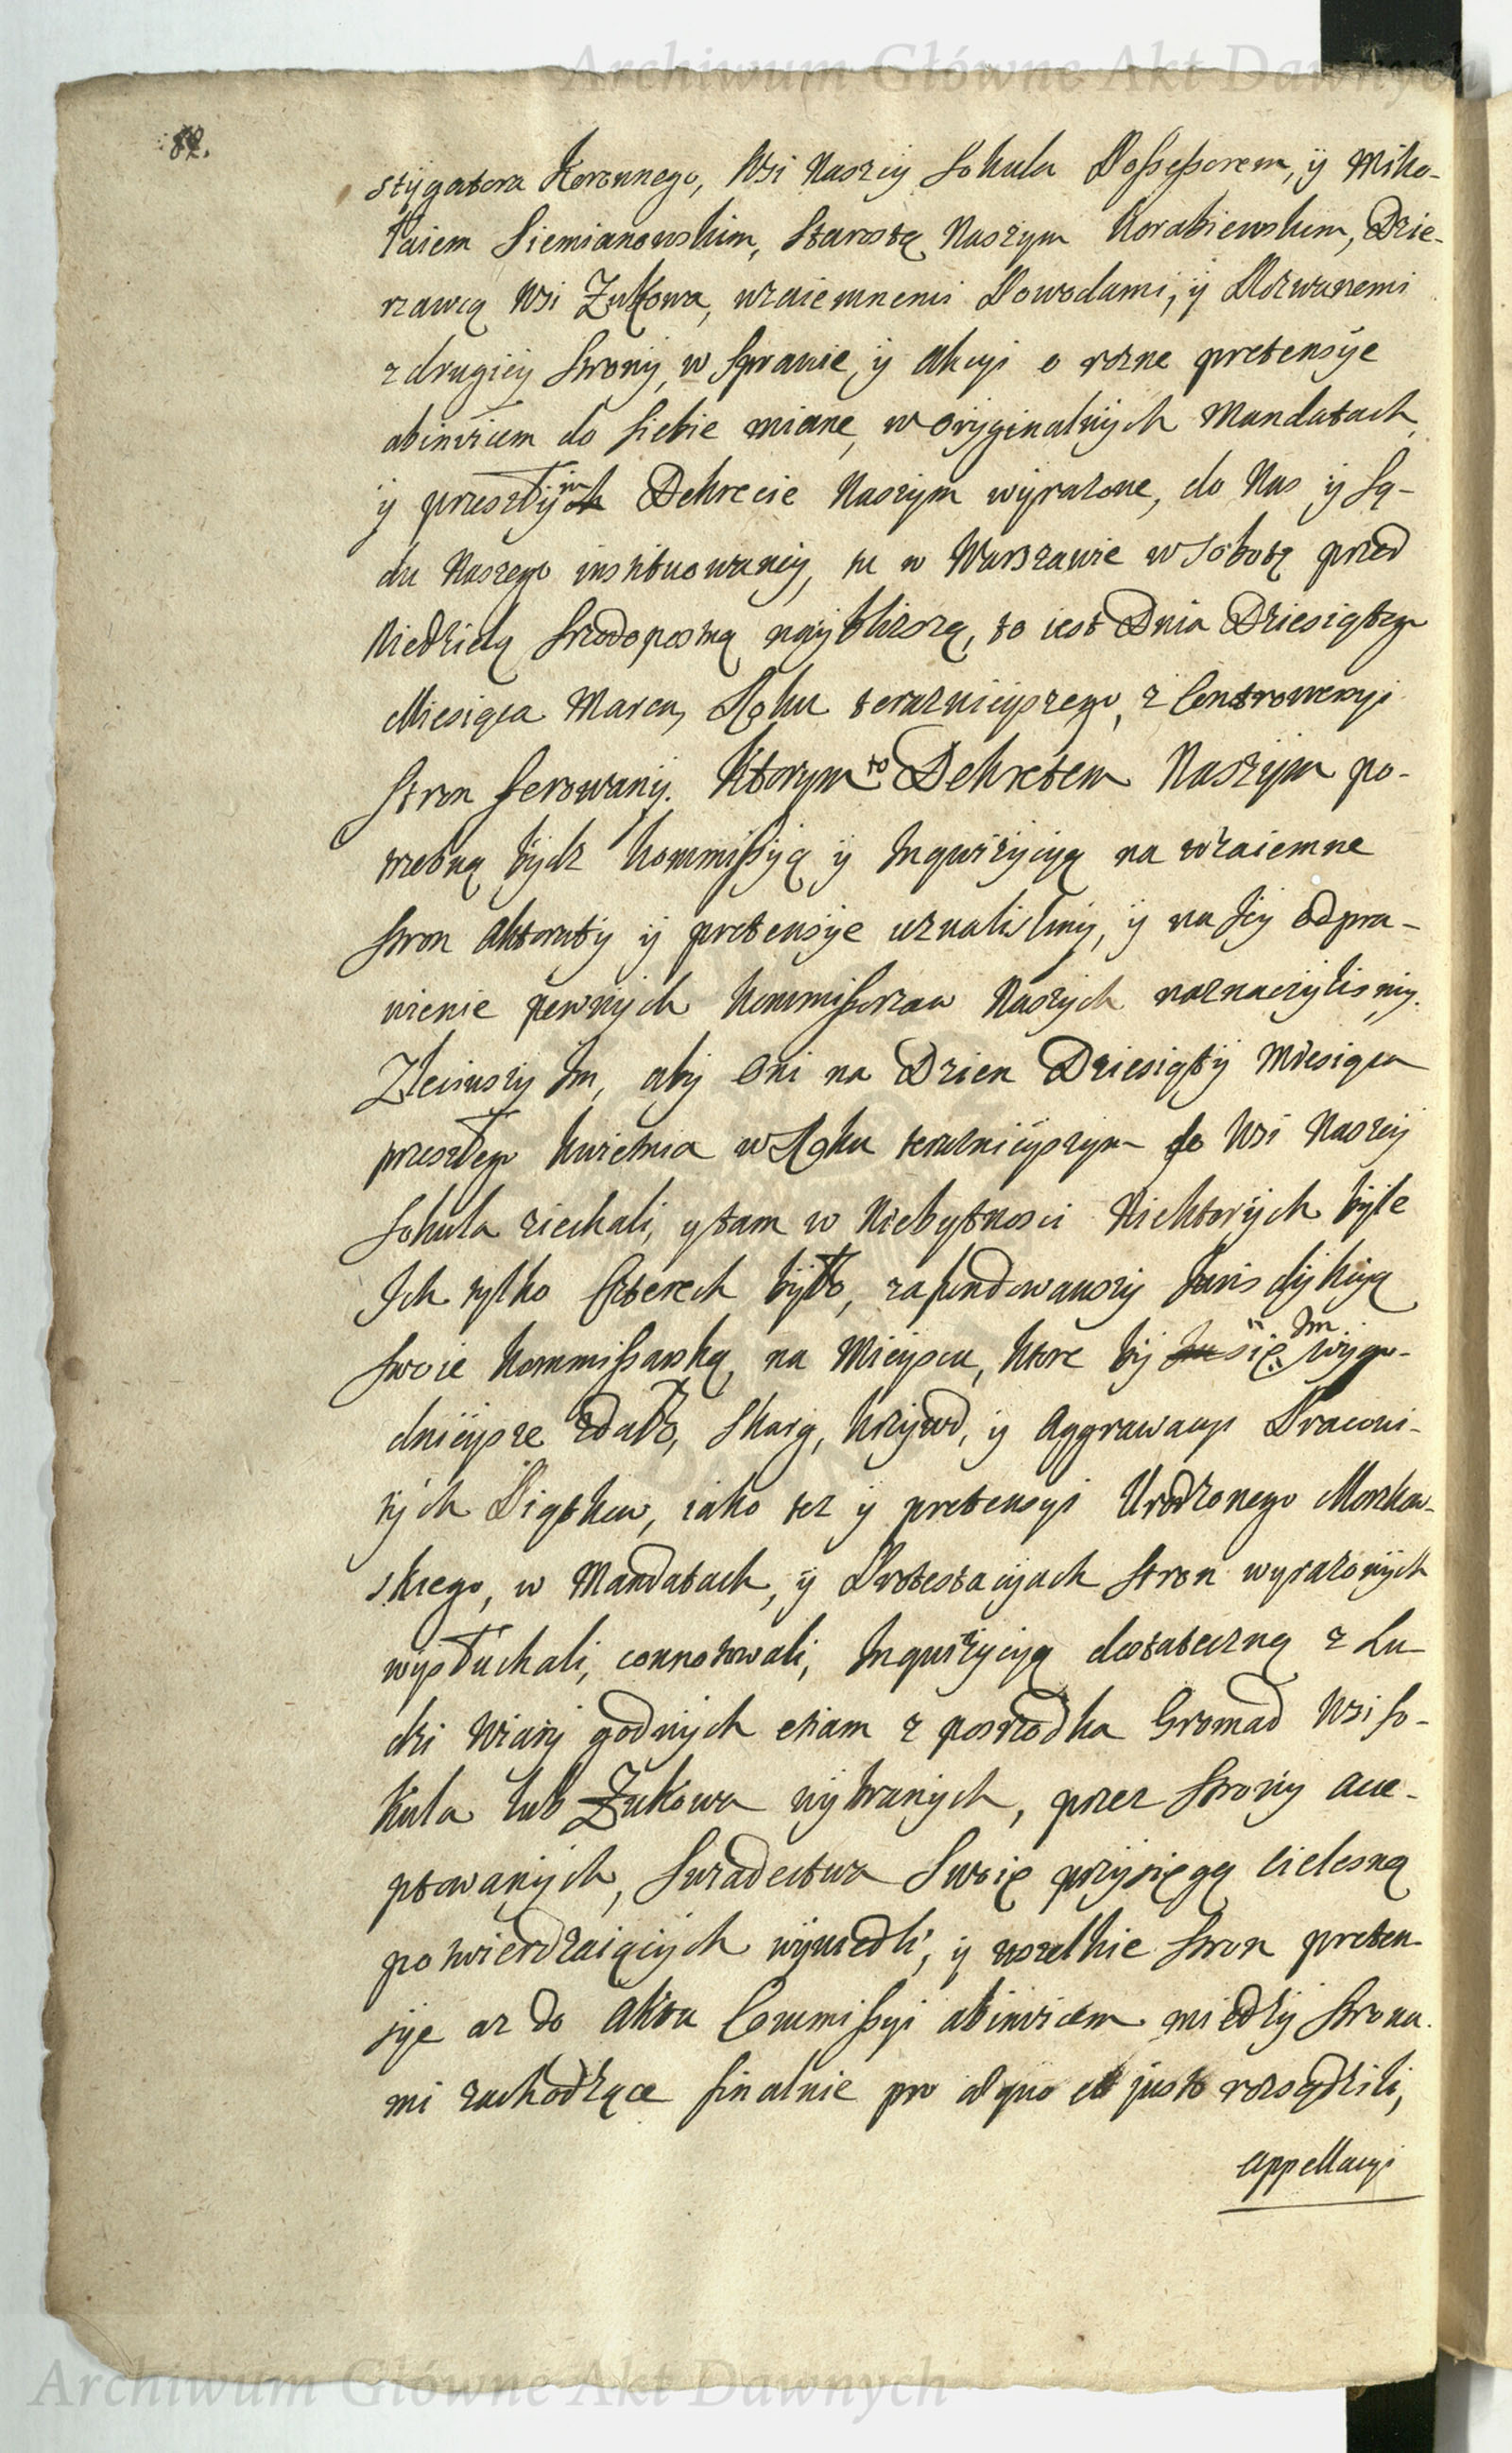 Archiwum Główne Akt Dawnych
82.
stygatora Koronnego, Wsi Naszey Sokula Possessorem, y Miko-
łaiem Siemianowskim, Starostą Naszym Korabiewskim, Dzie-
rzawcą Wsi Zukowa, wzaiemnemi Powodami, y Pozwanemi
z drugiey Strony, w Sprawie, y Akcyi o rozne pretensye
abinvicem do Siebie miane, w Oryginalnych Mandatach
y przeszłym Dekrecie Naszym wyrazone, do Nas y Są-
du Naszego instituowaney, tu w Warszawie w Sobotę przed
Niedzielą Srzodopostną nayblizszą, to iest Dnia Dziesiątego
Miesiąca Marca, Roku teraznieyszego, z Controwersyi
Stron ferowany. Ktorym to Dekretem Naszym po-
trzebną bydz Kommissyą y Inquizycyą na wzaiemne
Stron Aktoraty y pretensye uznalismy, y na Jey odpra-
wienie pewnych Kommissarzow Naszych naznaczylismy.
Zleciwszy Im, aby Oni na Dzien Dziesiąty Miesiąca
przeszłego Kwietnia w Roku teraznieyszym do Wsi Naszey
Sokula ziechali, y tam w Niebytnosci Niektorych byle
Ich tylko Czterech było, zafundowawszy Jurisdykcyą
Swoie Kommissarską, na Mieyscu, ktore by się Im wygo-
dnieysze zdało, Skarg, Krzywd, y Aggrawacyi Pracowi-
tych Piątkow, iako tez y pretensyi Urodzonego Moszkow-
skiego, w Mandatach, y Protestacyach Stron wyrazonych
wysłuchali, connotowali, Inquizycyą dostateczną z Lu-
dzi Wiary godnych etiam z posrzodka Gromad Wsi So-
kula lub Zukowa wybranych, przez Strony acce-
ptowanych, Swiadectwa Swoię przysięgą cielesną
potwierdzaiących wywiedli, y wszelkie Stron preten-
sye az do Aktu Commissyi abinvicem między Strona-
mi zachodzące finalnie pro aequo et justo rozsądzili,
Appellacyi
Archiwum Główne Akt Dawnych